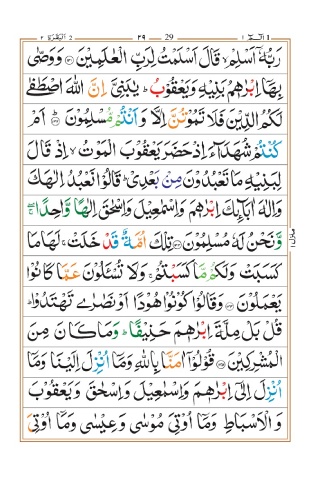 البقرة 2 ٢٩ 29 الٓمّٓ 1
رَبُّهٗۤ اَسْلِمْ ۙ قَالَ اَسْلَمْتُ لِرَبِّ الْعٰلَمِیْنَ ﴿۱۳۱﴾ وَ وَصّٰی
بِهَاۤ اِبْرٰهٖمُ بَنِیْهِ وَ یَعْقُوْبُ ؕ یٰبَنِیَّ اِنَّ اللّٰهَ اصْطَفٰی
لَكُمُ الدِّیْنَ فَلَا تَمُوْتُنَّ اِلَّا وَ اَنْتُمْ مُّسْلِمُوْنَ ﴿۱۳۲﴾ اَمْ
كُنْتُمْ شُهَدَآءَ اِذْ حَضَرَ یَعْقُوْبَ الْمَوْتُ ۙ اِذْ قَالَ
لِبَنِیْهِ مَا تَعْبُدُوْنَ مِنْۢ بَعْدِیْ ؕ قَالُوْا نَعْبُدُ اِلٰهَكَ
وَ اِلٰهَ اٰبَآىِٕكَ اِبْرٰهٖمَ وَ اِسْمٰعِیْلَ وَ اِسْحٰقَ اِلٰهًا وَّاحِدًا ۖۚ
وَّ نَحْنُ لَهٗ مُسْلِمُوْنَ ﴿۱۳۳﴾ تِلْكَ اُمَّةٌ قَدْ خَلَتْ ۚ لَهَا مَا
كَسَبَتْ وَ لَكُمْ مَّا كَسَبْتُمْ ۚ وَ لَا تُسْـَٔلُوْنَ عَمَّا كَانُوْا
یَعْمَلُوْنَ ﴿۱۳۴﴾ وَ قَالُوْا كُوْنُوْا هُوْدًا اَوْ نَصٰرٰی تَهْتَدُوْا ؕ
قُلْ بَلْ مِلَّةَ اِبْرٰهٖمَ حَنِیْفًا ؕ وَ مَا كَانَ مِنَ
الْمُشْرِكِیْنَ ﴿۱۳۵﴾ قُوْلُوْۤا اٰمَنَّا بِاللّٰهِ وَ مَاۤ اُنْزِلَ اِلَیْنَا وَ مَاۤ
اُنْزِلَ اِلٰۤی اِبْرٰهٖمَ وَ اِسْمٰعِیْلَ وَ اِسْحٰقَ وَ یَعْقُوْبَ
وَ الْاَسْبَاطِ وَ مَاۤ اُوْتِیَ مُوْسٰی وَ عِیْسٰی وَ مَاۤ اُوْتِیَ
منزل ۱